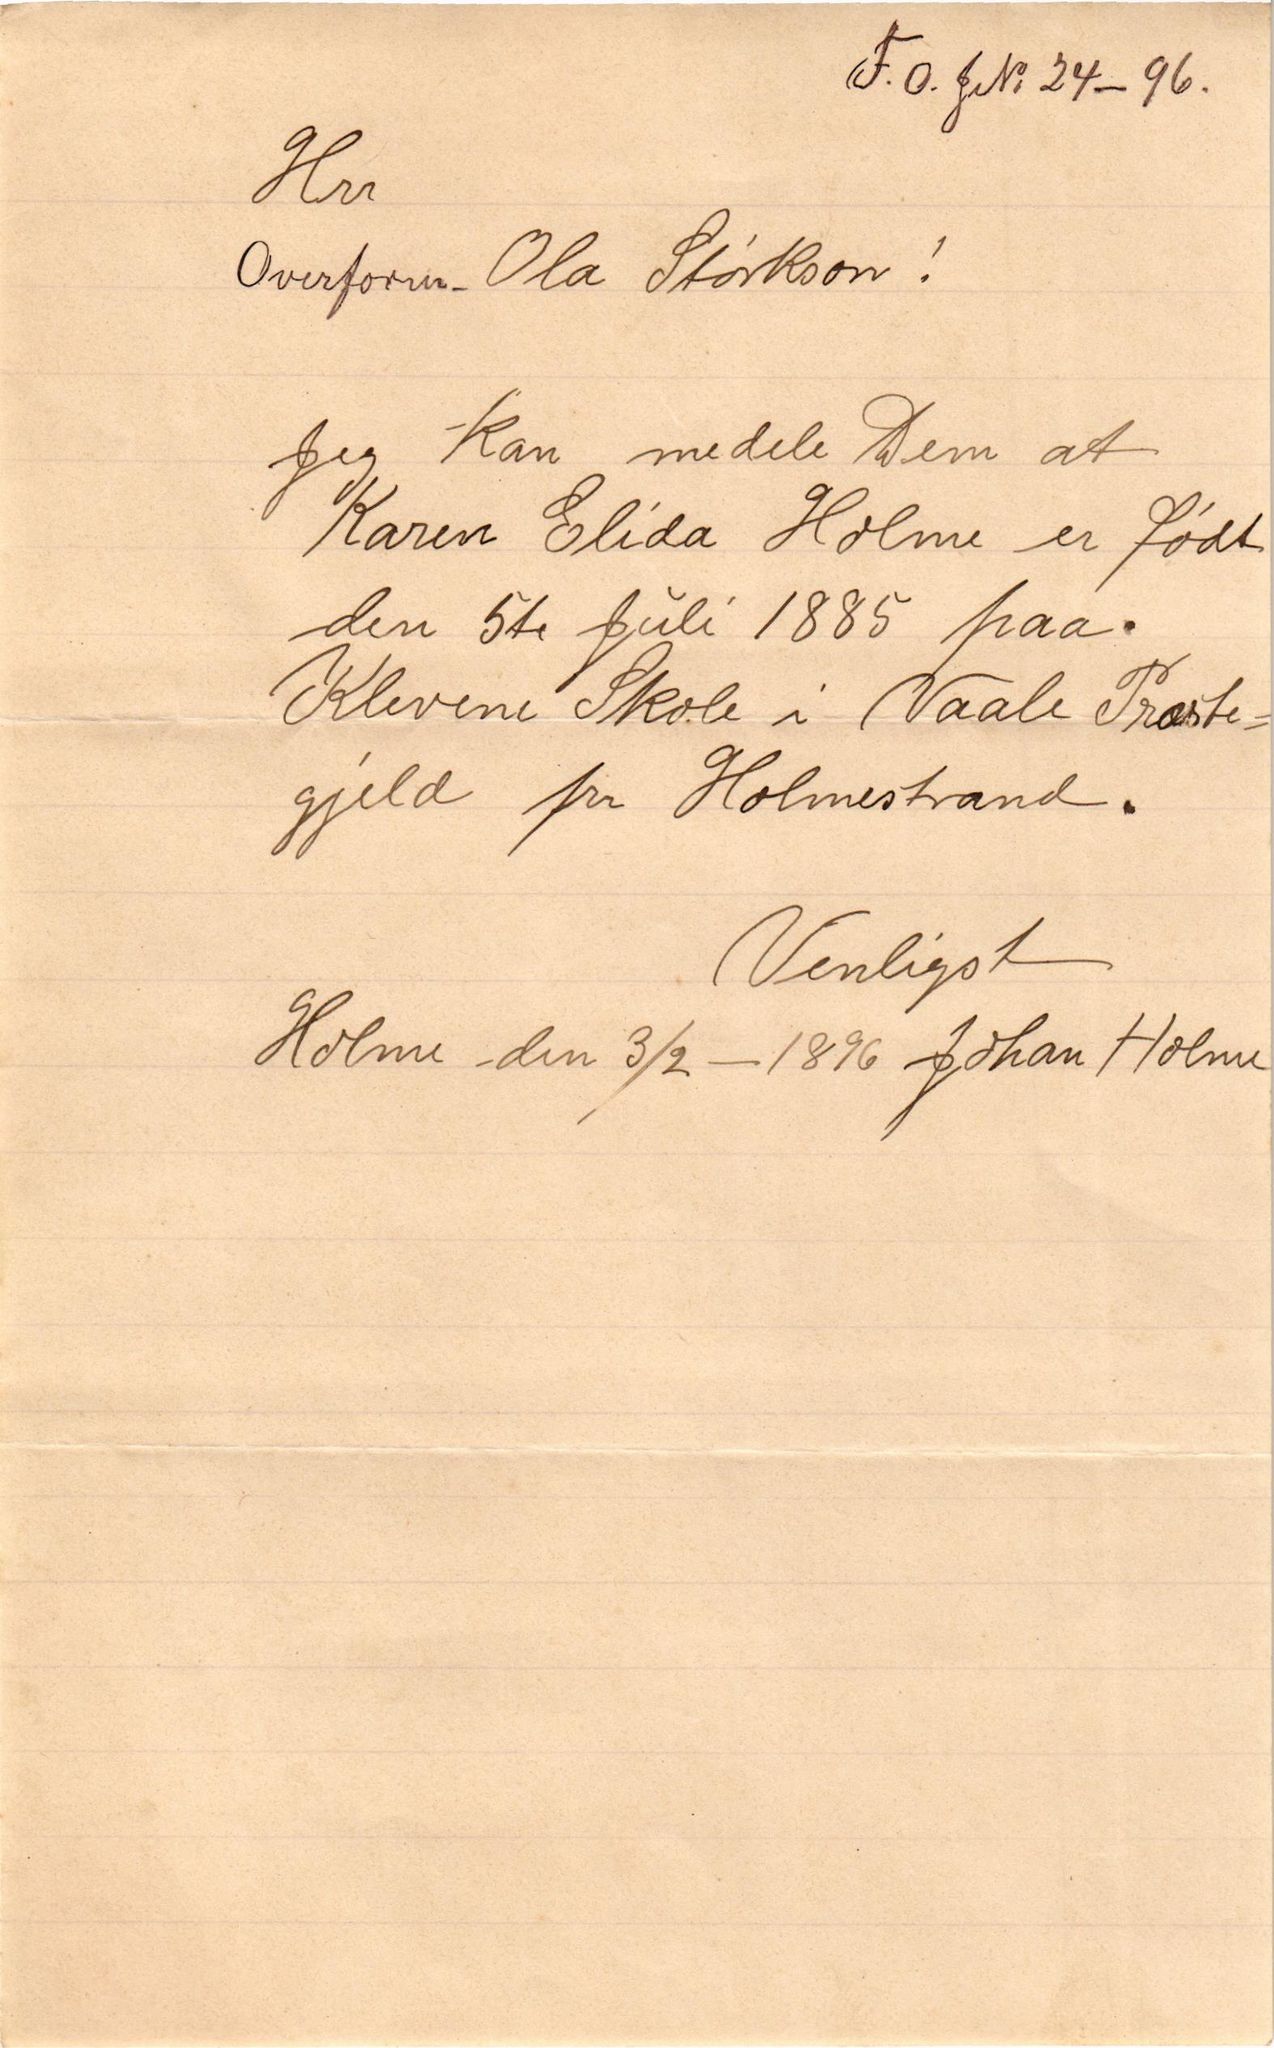 F. O. J No 24 – 96.
Hrr
Overform- Ola Størkson!
Jeg kan medele Dem at
Karen Elida Holme er født
den 5te Juli 1885 paa.
Klevene Skole i Vaale Præste=
gjeld pr Holmestrand.
Venligst
Holme den 3/2 – 1896 Johan Holme